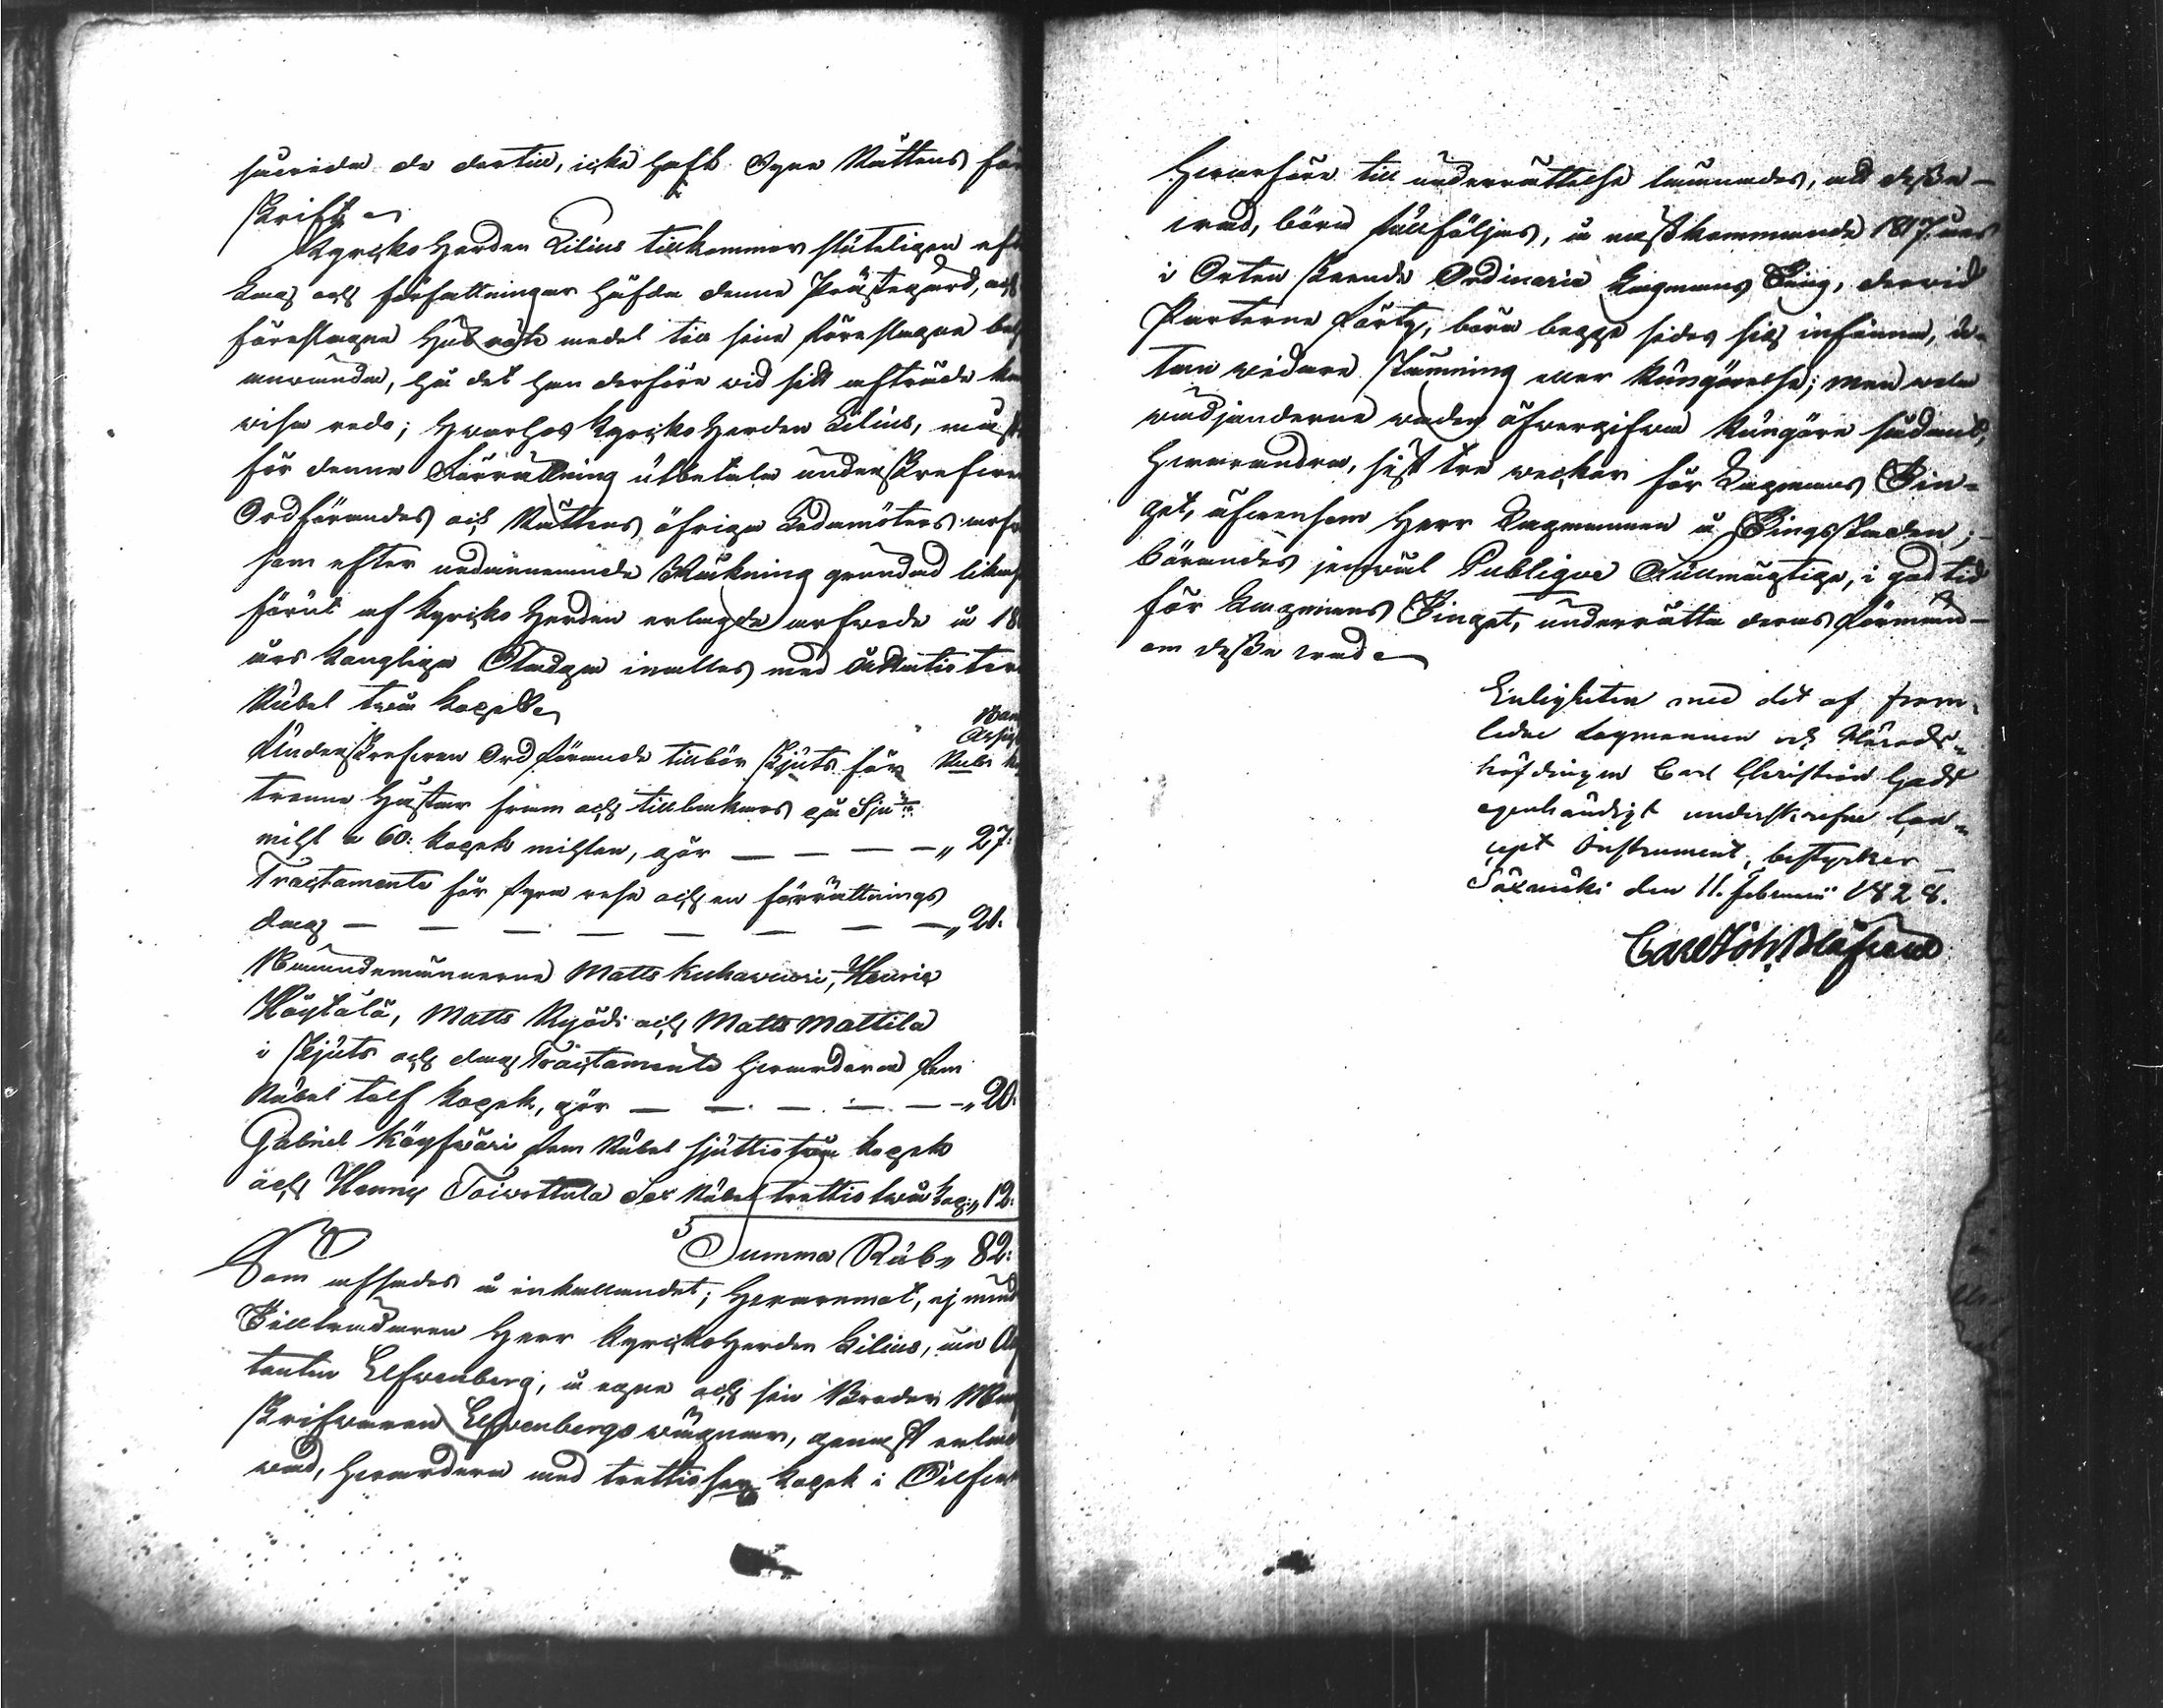 de dertill, icke haft Syne Rättens för
skrift
KyrckoHerden Lilius tillkommer sluteligen eft
Lag och författningar häfda denne Prästegård, och
föreslagne Husröte medel till sine föreslagne be
använda, hå det han derföre vid sitt afträde kan
visa redo; hvarhos KyrckoHerden Lilius, måste
för denne Förrättning utbetala underskrefven
Ordförandes och Rättens öfriga Ledamöters arfv
som efter nedannemnde Räkning grundad likas
förut af KyrckoHerden erlagde arfvode å 18
års Kongliga Stadga inalles med Åttatio tvu
Rubel två kopek
Underskrefven Ordförande tillbör skjuts för
trenne Hästar fram och tillbakars på Sju
mihl a 60: kopek mihlen, gör — — — — „ 27:
Tractamente för fyra rese och en förrättnings
dag — — — — — — — — „ 20.
Nämndemännerne Matts Kuhavuori, Henric
Höytälä, Matts Kyödi och Matts Mattila
i skjuts och dag Tractamente hvardera fem
Rubel tolf kopek, gör — — — — — „ 20.
Gabriel Köyhväri fem Rubel sjuttiotvå kopek
och Henric Toivottula Sex Rubel trettio två kop: „ 12:
Summa Rub „ 82:
Som afsades å inkallandet; hvaremot, ej mind
Tillträdaren Herr KyrckoHerden Lilius, än
tenten Elfvenberg, å egne och sin Broder
skrifvaren Elfvenbergs vägnar, genast anmä
vad, hvardera med trettiosex kopek i Silfver
Hvarföre till underrättelse lämnades, att desse
vad, böra fullföljas, å nästkommande 1817 års
i Orten skeende Ordinarie Lagmans Ting, dervid
Parterne förty, böra begge sidor sig infinna, u-
tan vidare stämning eller kungörelse; men vela
vädjanderne vaden öfvergifva kungöre sådant,
hvarandra, sist tre veckor för Lagmans Tin-
get, äfvensom Herr Lagmannen å Tingsstaden;
börandes jemväl Publique Fullmägtige, i god tid
för Lagmans Tinget, underrätta deras förmän
om desse vad
Enligheten med det af fram-
lidne Lagmannen och Härads-
höfdingen Carl Christian Gadd
egenhändigt underskrefne Con-
cept Instrument, bestyrker
Sääxmäki den 11. Februarii 1828.